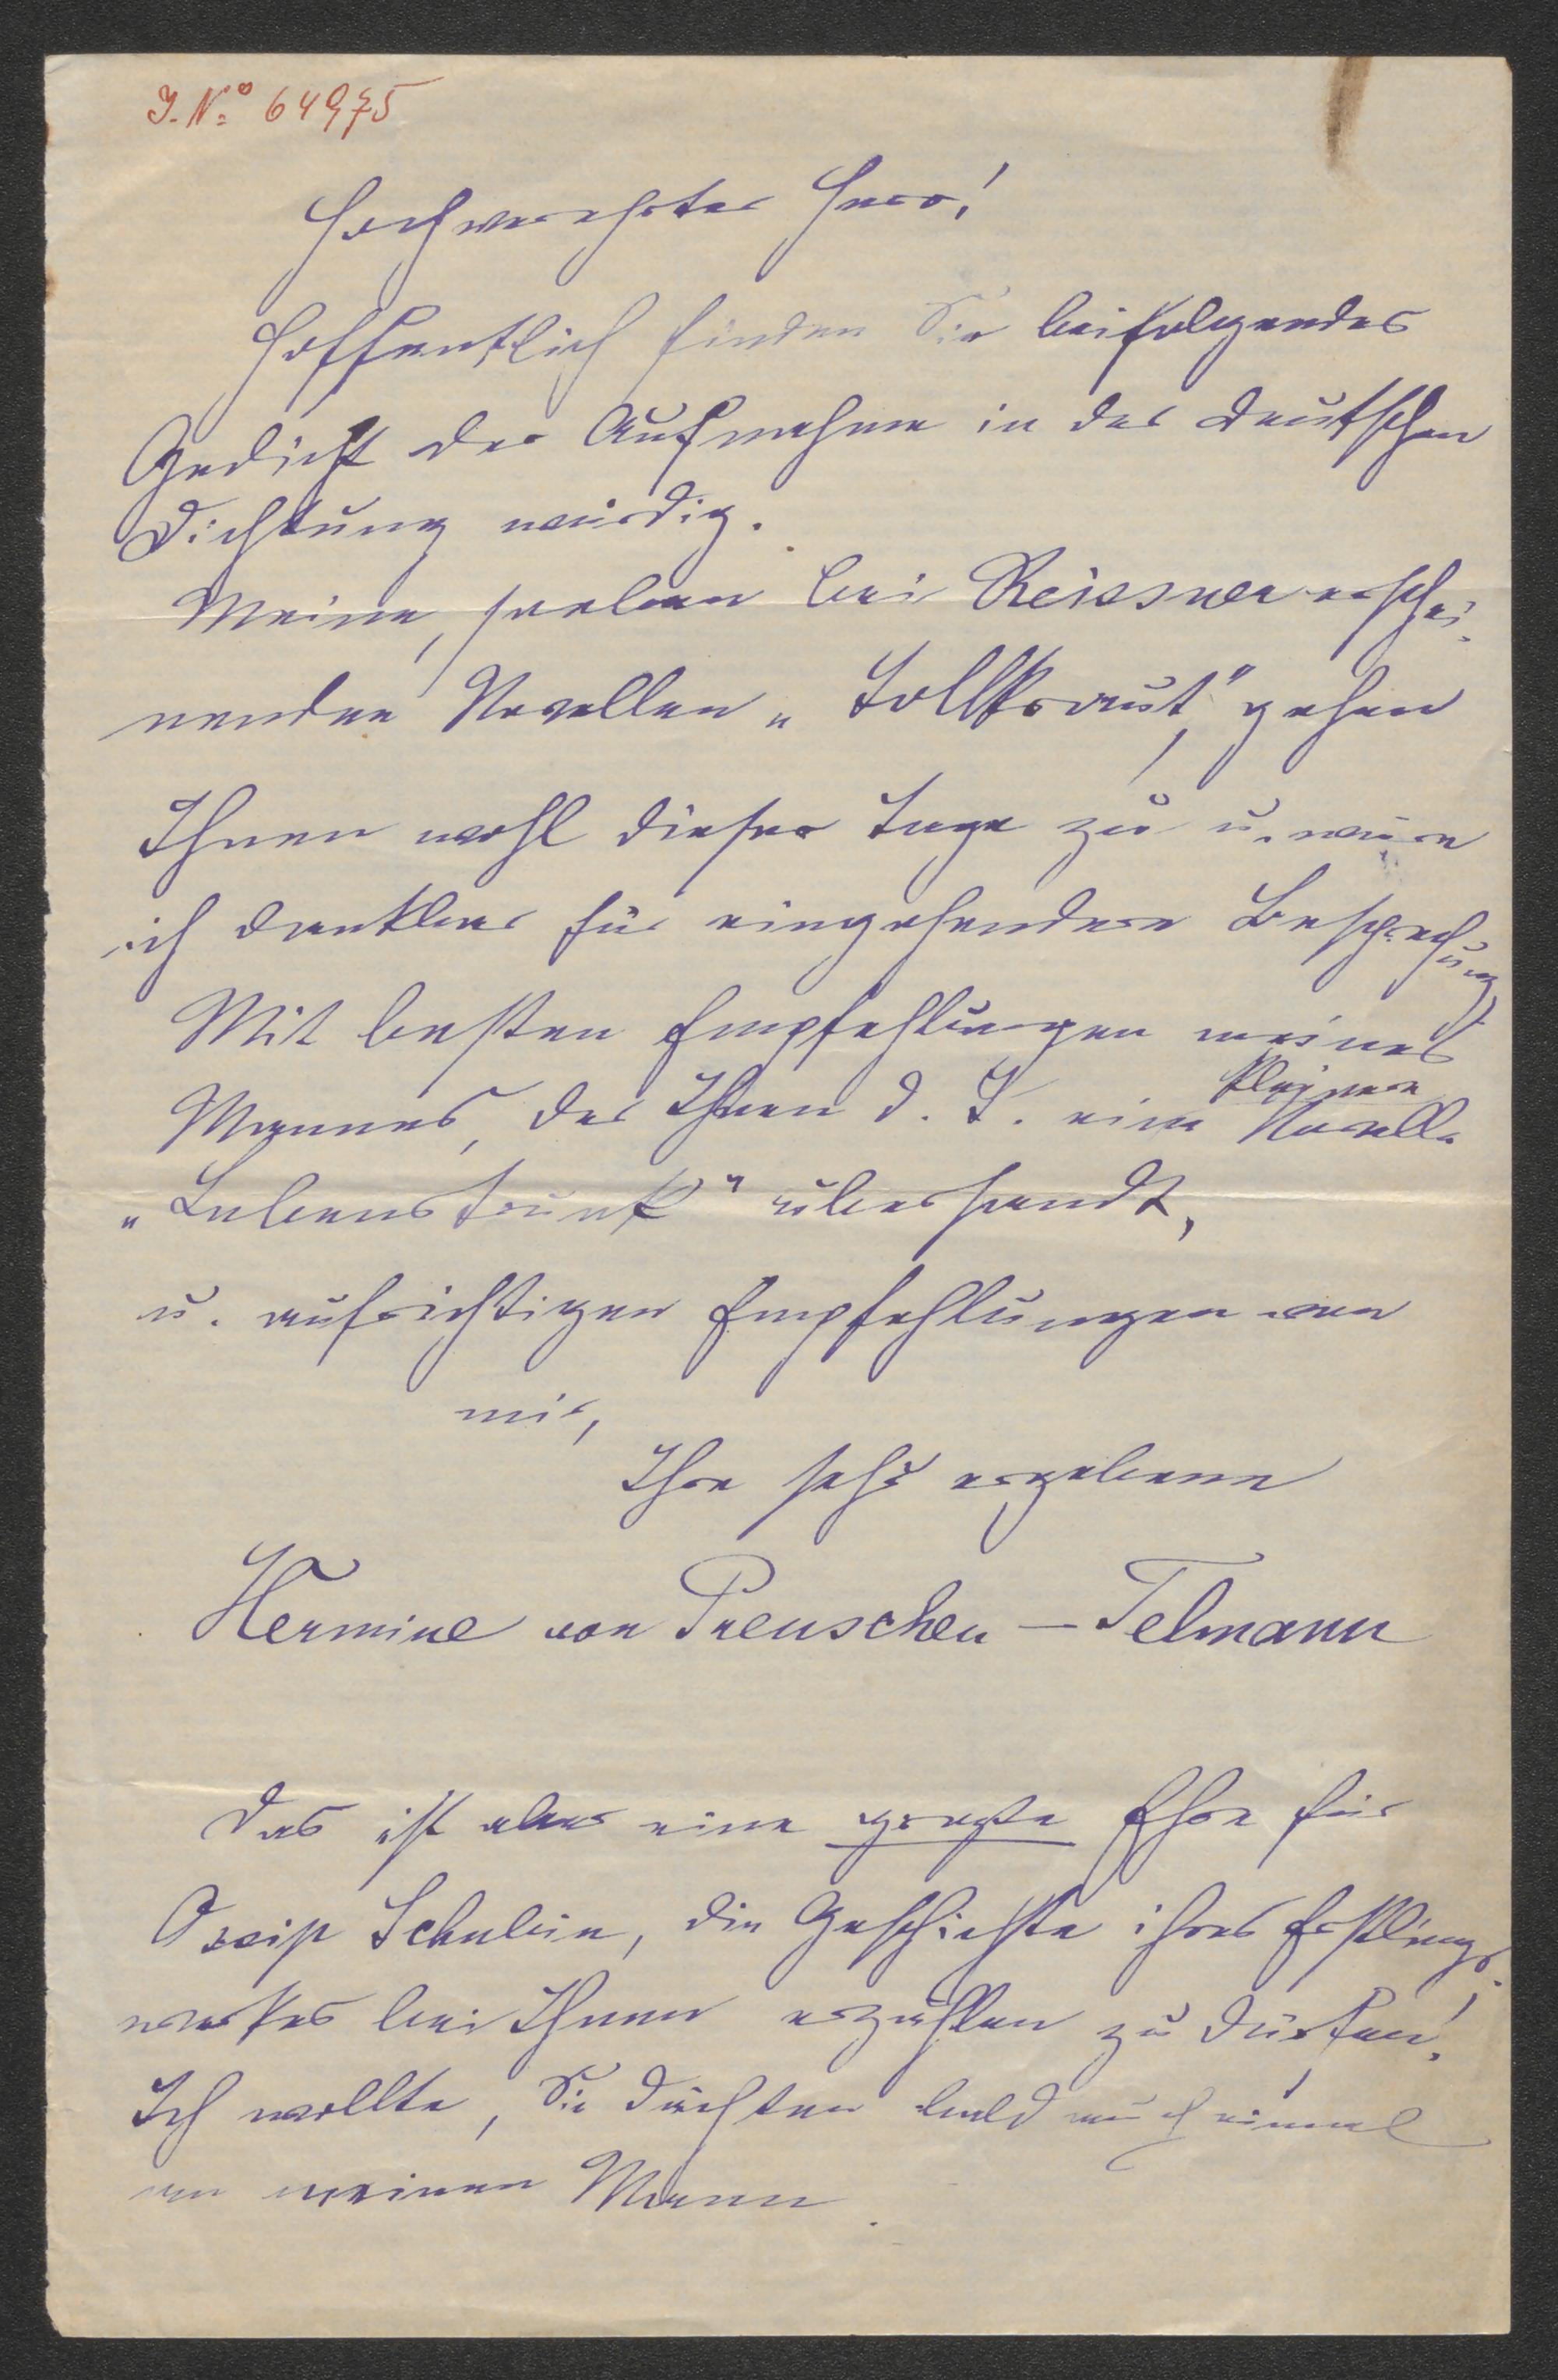 J. N.º 64975
Hochverehrter Herr!
Hoffentlich finden Sie beifolgendes
Gedicht der Aufnahme in der deutschen
Dichtung würdig.
Meine, soeben bei Reissner erschei-
nenden Novellen „Tollkraut", gehen
Ihnen wohl dieser Tage zu u. wäre
ich dankbar für eingehendere Besprechung
Mit besten Empfehlungen meines
Mannes, der Ihnen d. T. eine kleinere Novelle
„Lebenstrunk" übersandt,
u. aufrichtigen Empfehlungen von
mir,
Ihre sehr ergebene
Hermine von Preuschen – Telmann
Das ist aber eine große Ehre für
Ossip Schubin, die Geschichte ihres Erstlings-
werkes bei Ihnen erzählen zu dürfen!
Ich wollte, Sie dächten bald auch einmal
an meinen Mann.